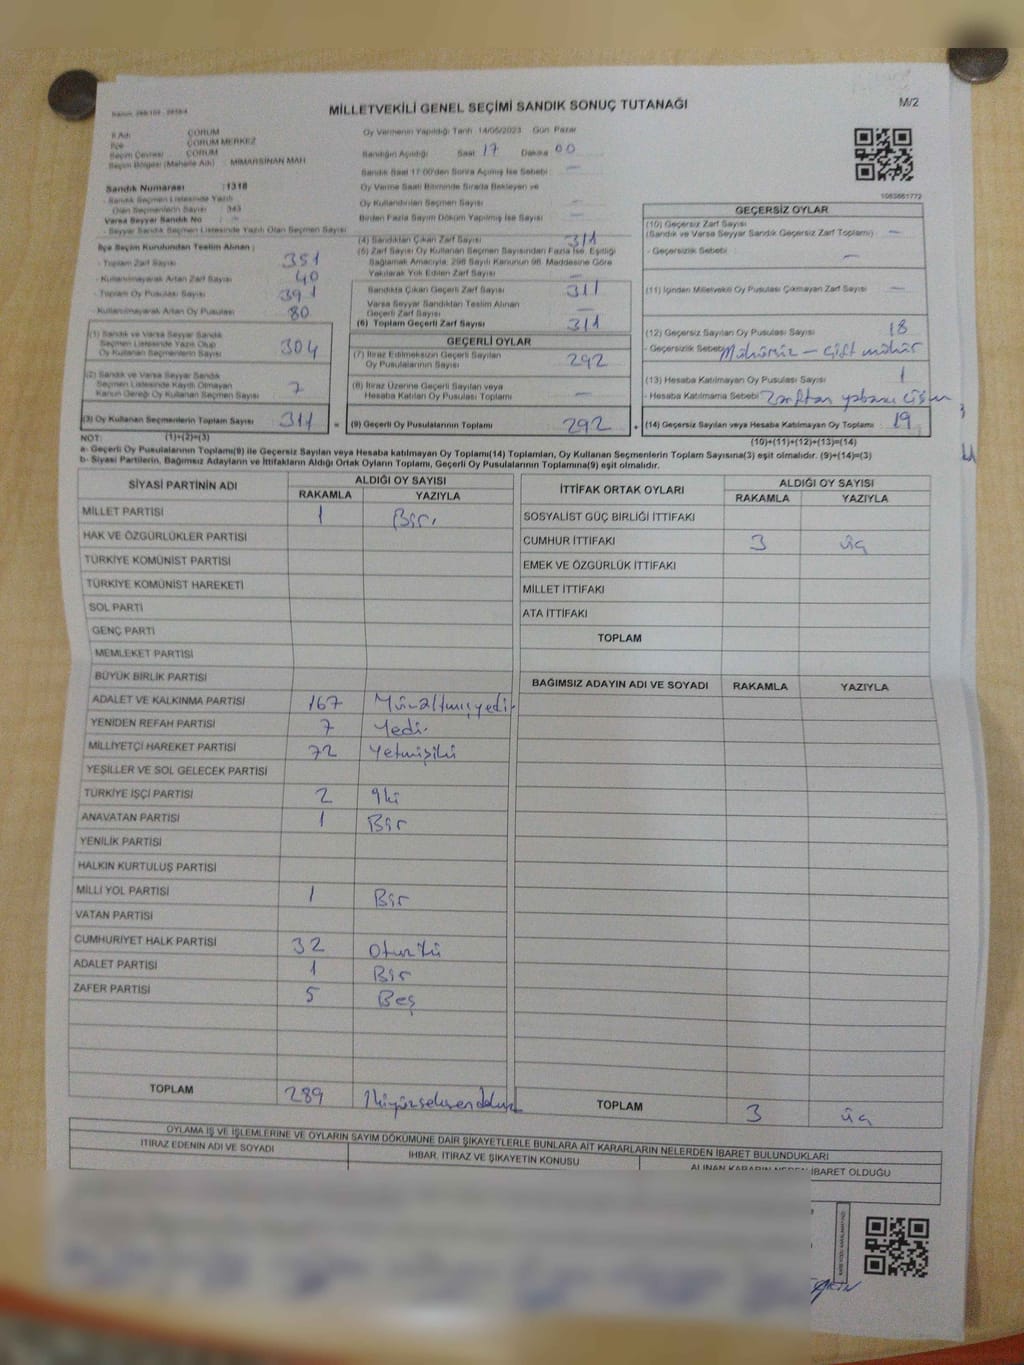 MİLLETVEKİLİ GENEL SEÇİMİ SANDIK SONUÇ TUTANAĞI
M/2
İl Adı : ÇORUM
İlçe : ÇORUM MERKEZ
Seçim Çevresi : ÇORUM
Seçim Bölgesi (Mahalle Adı) : MİMARSİNAN MAH
Sandık Numarası : 1318
- Sandık Seçmen Listesinde Yazılı
Olan Seçmenlerin Sayısı : 343
Varsa Seyyar Sandık No : -
- Seyyar Sandık Seçmen Listesinde Yazılı Olan Seçmen Sayısı
Oy Vermenin Yapıldığı Tarih 14/05/2023 Gün Pazar
Sandığın Açıldığı Saat 17 Dakika 00
Sandık Saat 17:00'den Sonra Açılmış İse Sebebi : —
Oy Verme Saati Bitiminde Sırada Bekleyen ve
Oy Kullandırılan Seçmen Sayısı : —
Birden Fazla Sayım Döküm Yapılmış İse Sayısı : —
1083661772
İlçe Seçim Kurulundan Teslim Alınan ;
- Toplam Zarf Sayısı : 351
- Kullanılmayarak Artan Zarf Sayısı : 40
- Toplam Oy Pusulası Sayısı : 391
- Kullanılmayarak Artan Oy Pusulası : 80
(1) Sandık ve Varsa Seyyar Sandık
Seçmen Listesinde Yazılı Olup
Oy Kullanan Seçmenlerin Sayısı : 304
(2) Sandık ve Varsa Seyyar Sandık
Seçmen Listesinde Kayıtlı Olmayan
Kanun Gereği Oy Kullanan Seçmen Sayısı : 7
(3) Oy Kullanan Seçmenlerin Toplam Sayısı : 311 =
(4) Sandıktan Çıkan Zarf Sayısı : 311
(5) Zarf Sayısı Oy Kullanan Seçmen Sayısından Fazla İse, Eşitliği
Sağlamak Amacıyla; 298 Sayılı Kanunun 98. Maddesine Göre
Yakılarak Yok Edilen Zarf Sayısı : —
Sandıkta Çıkan Geçerli Zarf Sayısı : 311
Varsa Seyyar Sandıktan Teslim Alınan
Geçerli Zarf Sayısı : —
(6) Toplam Geçerli Zarf Sayısı : 311
GEÇERLİ OYLAR
(7) İtiraz Edilmeksizin Geçerli Sayılan
Oy Pusulalarının Sayısı : 292
(8) İtiraz Üzerine Geçerli Sayılan veya
Hesaba Katılan Oy Pusulası Toplamı : —
(9) Geçerli Oy Pusulalarının Toplamı : 292 +
GEÇERSİZ OYLAR
(10) Geçersiz Zarf Sayısı
(Sandık ve Varsa Seyyar Sandık Geçersiz Zarf Toplamı) : —
- Geçersizlik Sebebi : —
(11) İçinden Milletvekili Oy Pusulası Çıkmayan Zarf Sayısı : —
(12) Geçersiz Sayılan Oy Pusulası Sayısı : 18
- Geçersizlik Sebebi : Mühürsüz — Çift mühür
(13) Hesaba Katılmayan Oy Pusulası Sayısı : 1
- Hesaba Katılmama Sebebi : Zarftan yabancı
(14) Geçersiz Sayılan veya Hesaba Katılmayan Oy Toplamı : 19
NOT: (1)+(2)=(3)
(10)+(11)+(12)+(13)=(14)
a- Geçerli Oy Pusulalarının Toplamı(9) ile Geçersiz Sayılan veya Hesaba katılmayan Oy Toplamı(14) Toplamları, Oy Kullanan Seçmenlerin Toplam Sayısına(3) eşit olmalıdır. (9)+(14)=(3)
b- Siyasi Partilerin, Bağımsız Adayların ve İttifakların Aldığı Ortak Oyların Toplamı, Geçerli Oy Pusulalarının Toplamına(9) eşit olmalıdır.
SİYASİ PARTİNİN ADI ALDIĞI OY SAYISI
RAKAMLA YAZIYLA
MİLLET PARTİSİ 1 Bir
HAK VE ÖZGÜRLÜKLER PARTİSİ
TÜRKİYE KOMÜNİST PARTİSİ
TÜRKİYE KOMÜNİST HAREKETİ
SOL PARTİ
GENÇ PARTİ
MEMLEKET PARTİSİ
BÜYÜK BİRLİK PARTİSİ
ADALET VE KALKINMA PARTİSİ 167 Yüzaltmışyedi
YENİDEN REFAH PARTİSİ 7 Yedi
MİLLİYETÇİ HAREKET PARTİSİ 72 Yetmişiki
YEŞİLLER VE SOL GELECEK PARTİSİ
TÜRKİYE İŞÇİ PARTİSİ 2 İki
ANAVATAN PARTİSİ 1 Bir
YENİLİK PARTİSİ
HALKIN KURTULUŞ PARTİSİ
MİLLİ YOL PARTİSİ 1 Bir
VATAN PARTİSİ
CUMHURİYET HALK PARTİSİ 32 Otuziki
ADALET PARTİSİ 1 Bir
ZAFER PARTİSİ 5 Beş
TOPLAM 289 İkiyüzseksendokuz
İTTİFAK ORTAK OYLARI ALDIĞI OY SAYISI
RAKAMLA YAZIYLA
SOSYALİST GÜÇ BİRLİĞİ İTTİFAKI
CUMHUR İTTİFAKI 3 üç
EMEK VE ÖZGÜRLÜK İTTİFAKI
MİLLET İTTİFAKI
ATA İTTİFAKI
TOPLAM
BAĞIMSIZ ADAYIN ADI VE SOYADI RAKAMLA YAZIYLA
TOPLAM 3 üç
OYLAMA İŞ VE İŞLEMLERİNE VE OYLARIN SAYIM DÖKÜMÜNE DAİR ŞİKAYETLERLE BUNLARA AİT KARARLARIN NELERDEN İBARET BULUNDUKLARI
İTİRAZ EDENİN ADI VE SOYADI İHBAR, İTİRAZ VE ŞİKAYETİN KONUSU ALINAN KARARIN NEDEN İBARET OLDUĞU